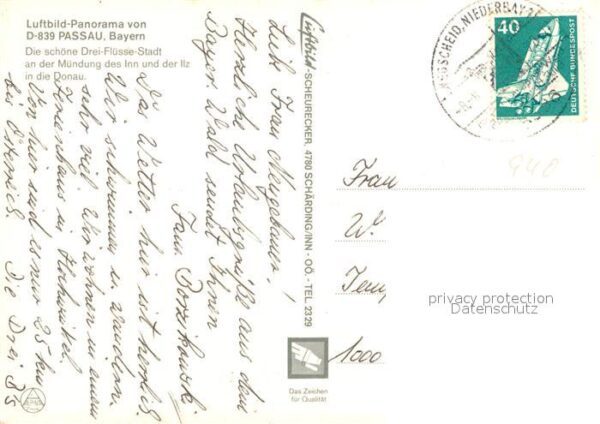 Luftbild-Panorama von
D-839 PASSAU, Bayern
Die schöne Drei-Flüsse-Stadt
an der Mündung des Inn und der Ilz
in die Donau.
Luftbild-SCHEURECKER, 4780 SCHÄRDING/INN - OÖ. - TEL 2329
Lieb. Frau Neugebauer!
Herzliche Urlaubsgrüße aus dem
Bayer. Wald sendet Ihnen
Fam.
Das Wetter hier ist herrlich.
Wir schwimmen u. wandern
sehr viel. Wir wohnen in einem
Ferienhaus in
Von hier sind es nur 25 km
bis Österreich. Die Drei
40
DEUTSCHE BUNDESPOST
NIEDERBAY
940
Frau
W.
1000
Das Zeichen
für Qualität
privacy protection
Datenschutz